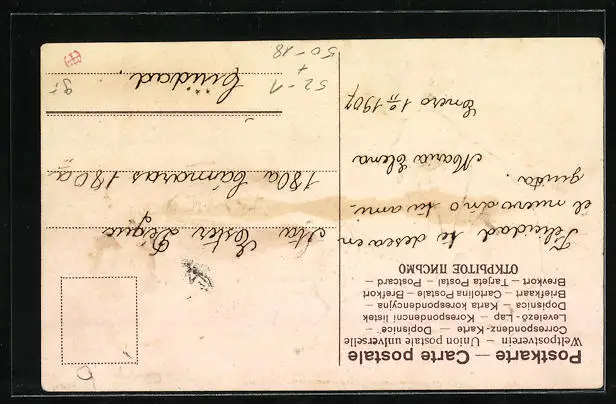 Postkarte — Carte postale
Weltpostverein — Union postale universelle
Correspondenz-Karte — Dopisnice
Levelező-Lap — Korespondenční lístek
Dopisnica — Karta korespondencyjna
Briefkaart — Cartolina Postale — Brefkort
Brevkort — Tarjeta Postal — Postcard
ОТКРЫТОЕ ПИСЬМО
Felicidad te desea en
el nuevo año tu ami-
guita.
Maria Elena
Enero 1º 1907
Sta Ester
180a Cámaras 180a
Ciudad.
52-1
+
50-18